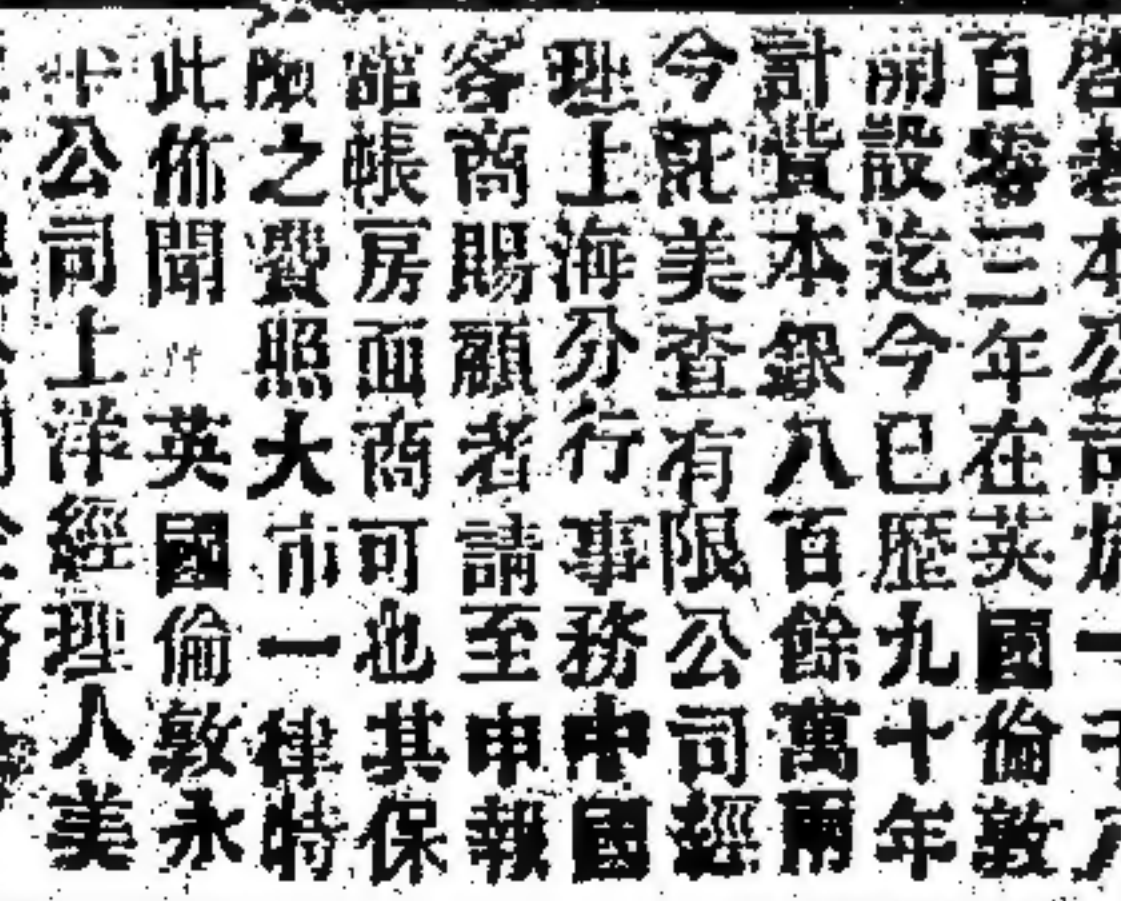 啓者本公司於一千八
百零三年在英國倫敦
開設迄今已歷九十年
計貲本銀八百餘萬兩
今託美查有限公司經
理上海分行事務中國
客商賜顧者請至申報
館帳房面商可也其保
險之費照大市一律特
此佈聞 英國倫敦永
公司上洋經理人美